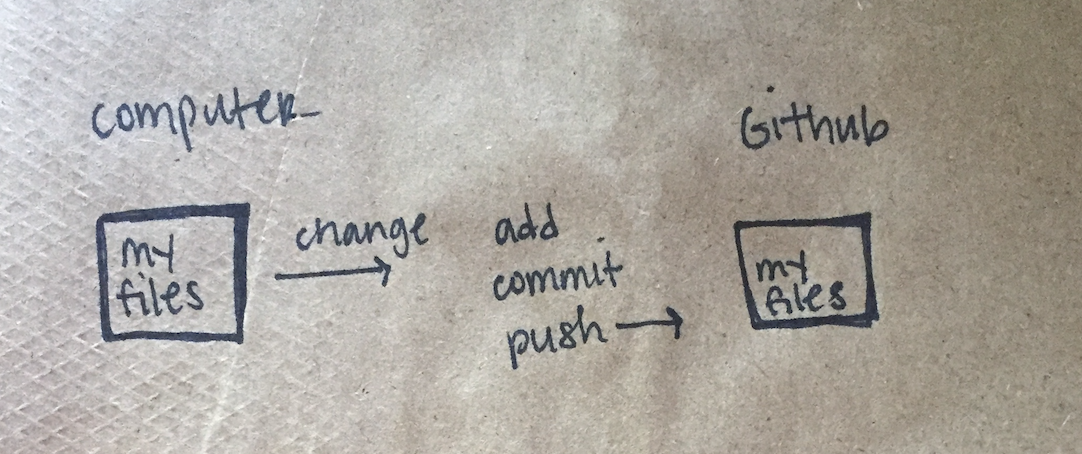 computer
Github
my
files
change
add
commit
push
my
files